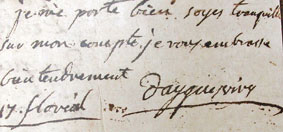 je me porte bien, soyes tranquille
sur mon compte, je vous embrasse
bien tendrement
17. floréal